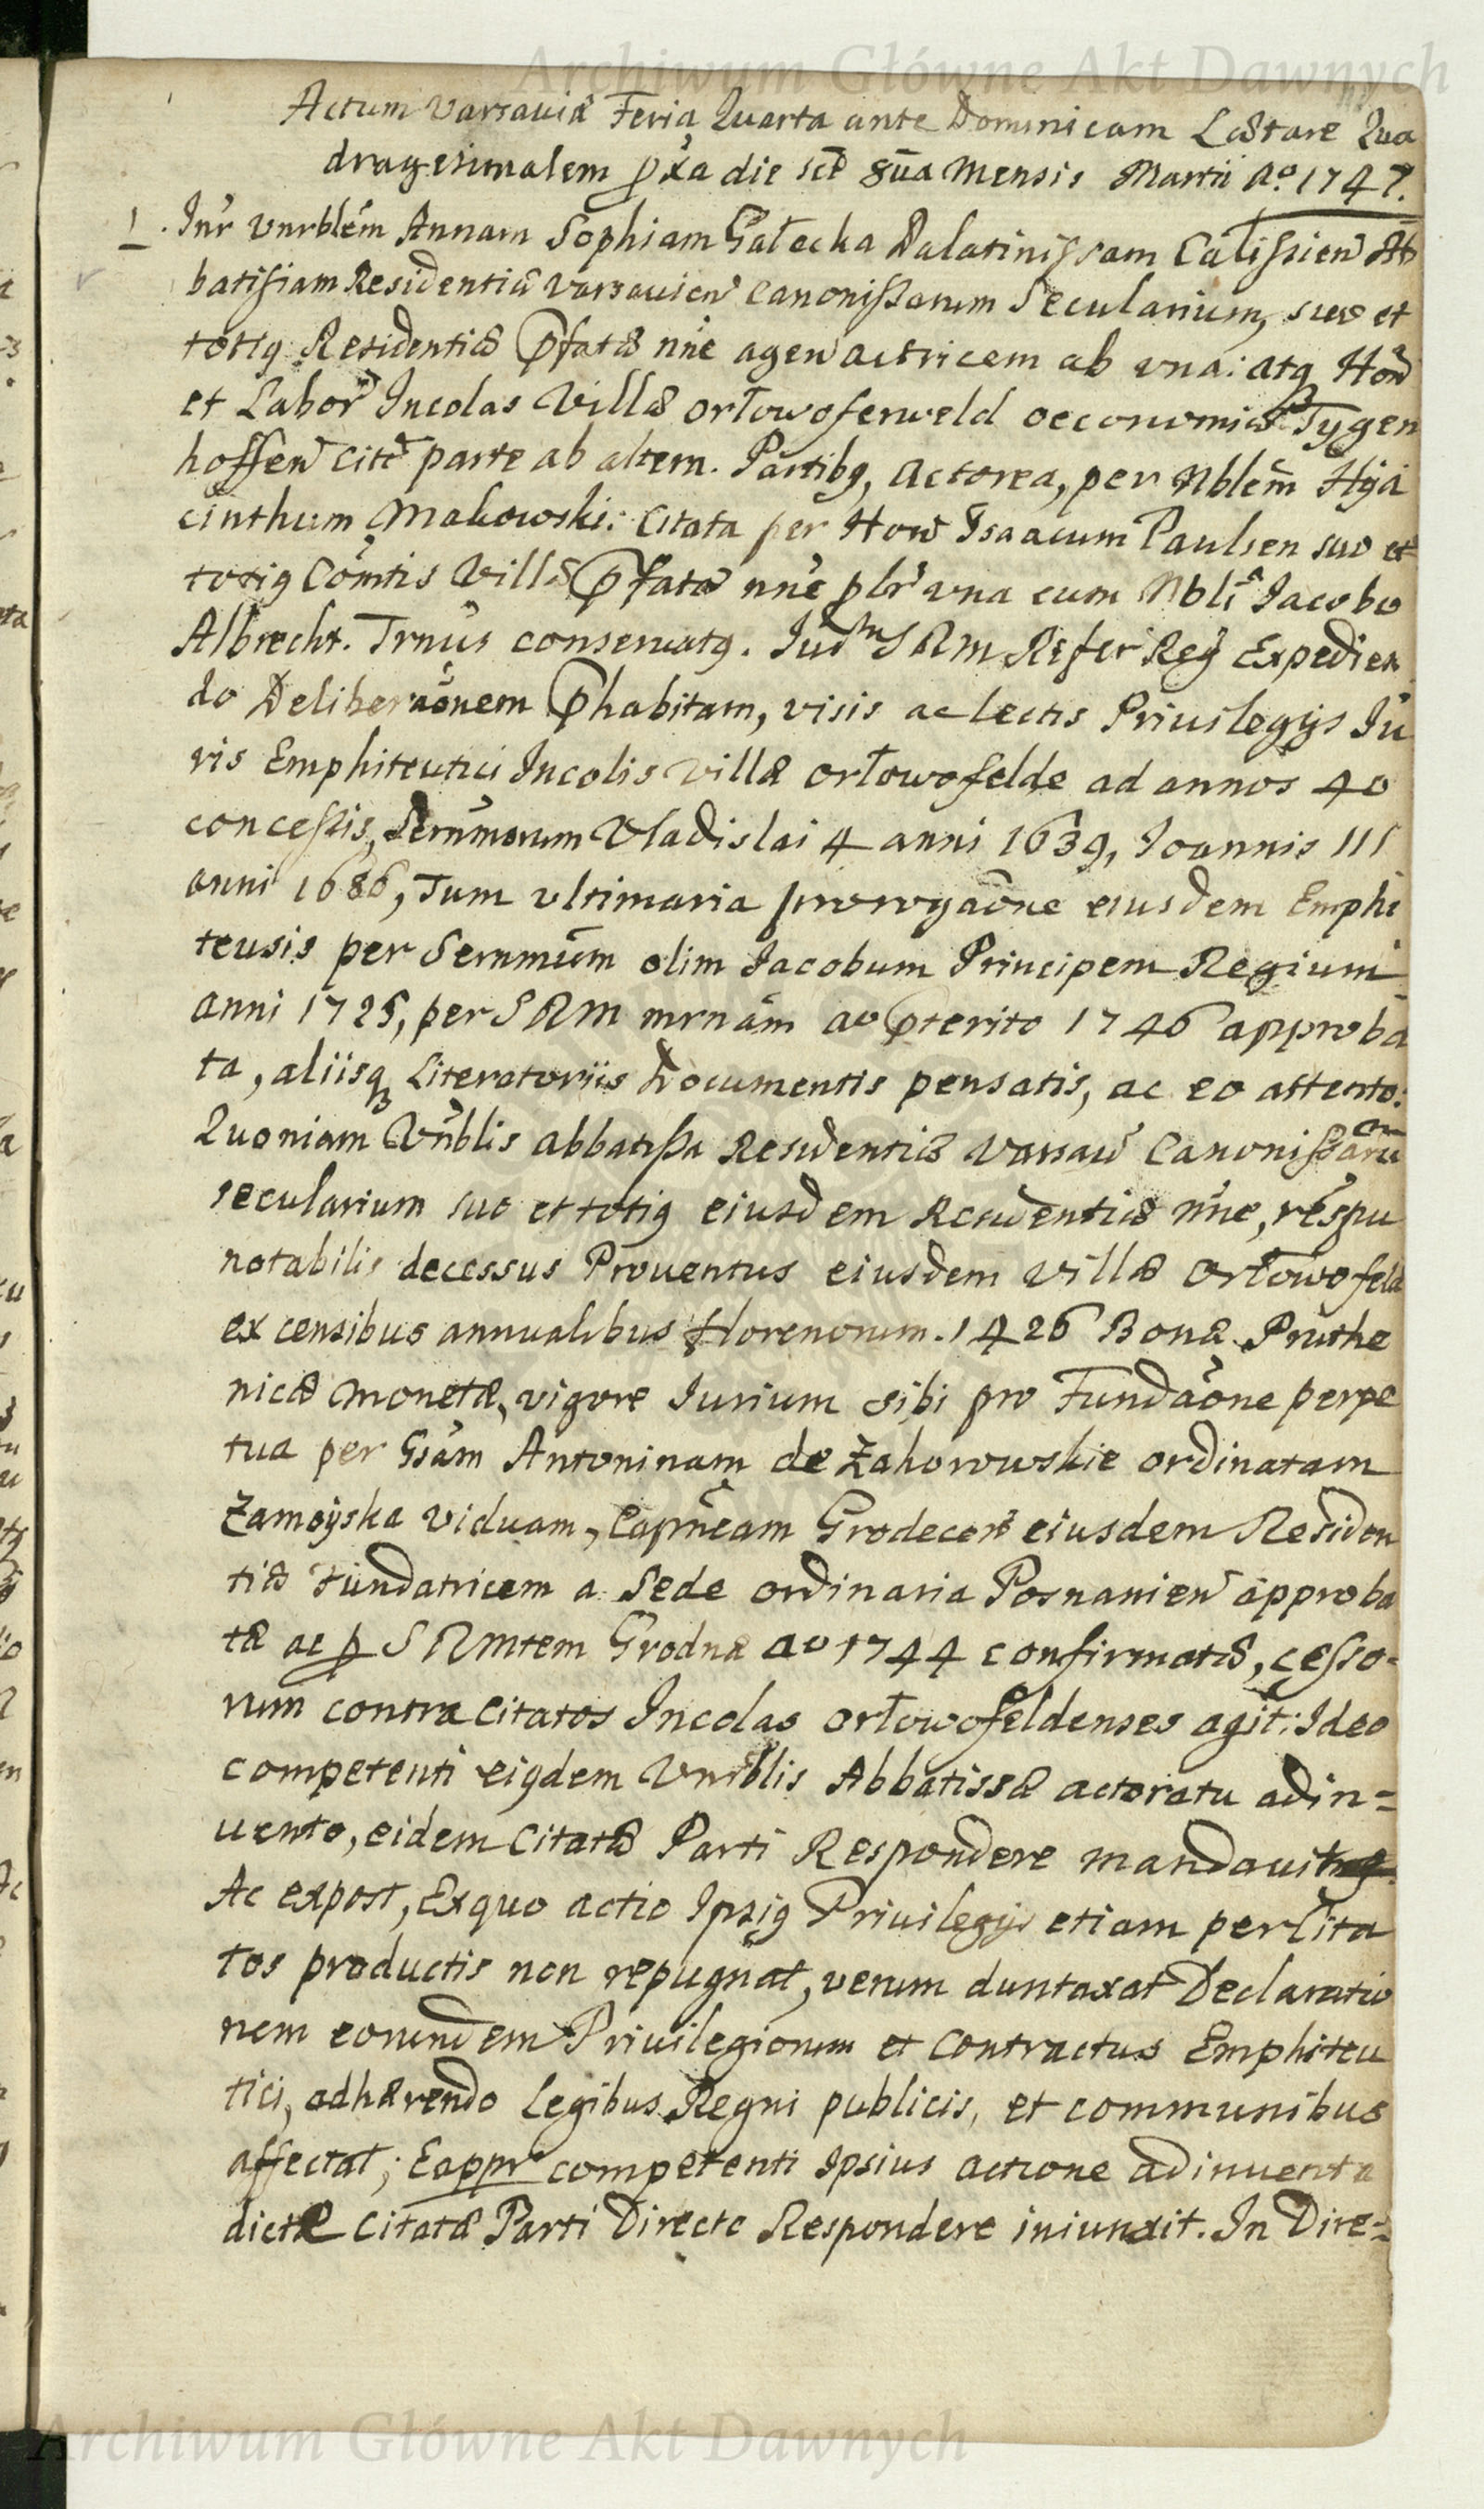 Archiwum Główne Akt Dawnych
Actum Varsaviæ Feria Quarta ante Dominicam Lætare Qua
dragesimalem pxa die sct 8ua Mensis Martii Ao. 1747.
1. Intr Vnrblem Annam Sophiam Gałecka Palatinissam Calissien Ab
batissam Residentiæ Varsavien Canonissarum Secularium, suo et
totiq Residentiæ pfatæ nne agen actricem ab vna: atq Hon
et Labor Incolas Villæ Orłowoferweld oeconomiæ Tygen
hoffen cite parte ab altera. Partibq, Actorea, per Nblem Hya
cinthum Makowski: Citata per Hon Isaacum Paulsen suo et
totiq Comtis Villæ pfatæ nne pbr vna cum Nbli Jacobo
Albrecht. Trnus conservatq. Iudm SRM Refer Rey Expedien
do Deliberaonem phabitam, visis ac lectis Privilegijs Iu
ris Emphiteutici Incolis villæ Orłowofelde ad annos 40
concessis, Sernmorum Vladislai 4 anni 1639, Ioannis III
anni 1686, Tum vltimaria prorogaone eiusdem Emphi
teusis per Sernmum olim Jacobum Principem Regium
anni 1725, per SRM mrnam ao pterito 1746 approba
ta, aliisq Literatoriis Documentis pensatis, ac eo attento:
Quoniam Vnblis abbatissa Residentiæ Varsav Canonissaru
secularium suo et totiq eiusdem Residentiæ nne, respu
notabilis decessus Proventus eiusdem villæ Orłowofeld
ex censibus annualibus florenorum 1426 Bonæ Pruthe
nicæ Monetæ, vigore Iurium sibi pro Fundaone perpe
tua per Gsam Antoninam de Zahorowskie ordinatam
Zamoyska viduam, Capneam Grodecen eiusdem Residen
tiæ Fundatricem a Sede ordinaria Posnanien approba
tæ ac p SRMtem Grodnæ ao 1744 confirmatæ, cesso-
rum contra Citatos Incolas Orłowofeldenses agit: Ideo
competenti eiqdem Vnrblis Abbatissæ actoratu adin=
uento, eidem Citatæ Parti Respondere mandauit
Ac expost, Exquo actio Ipsiq Privilegijs etiam per Cita
tos productis non repugnat, verum duntaxat Declaratio
nem eorundem Privilegiorum et Contractus Emphiteu
tici, adhærendo Legibus Regni publicis, et communibus
affectat; Eappr competenti Ipsius actione adinuenta
dictæ Citatæ Parti Directe Respondere iniunxit. In Dire=
Archiwum Główne Akt Dawnych